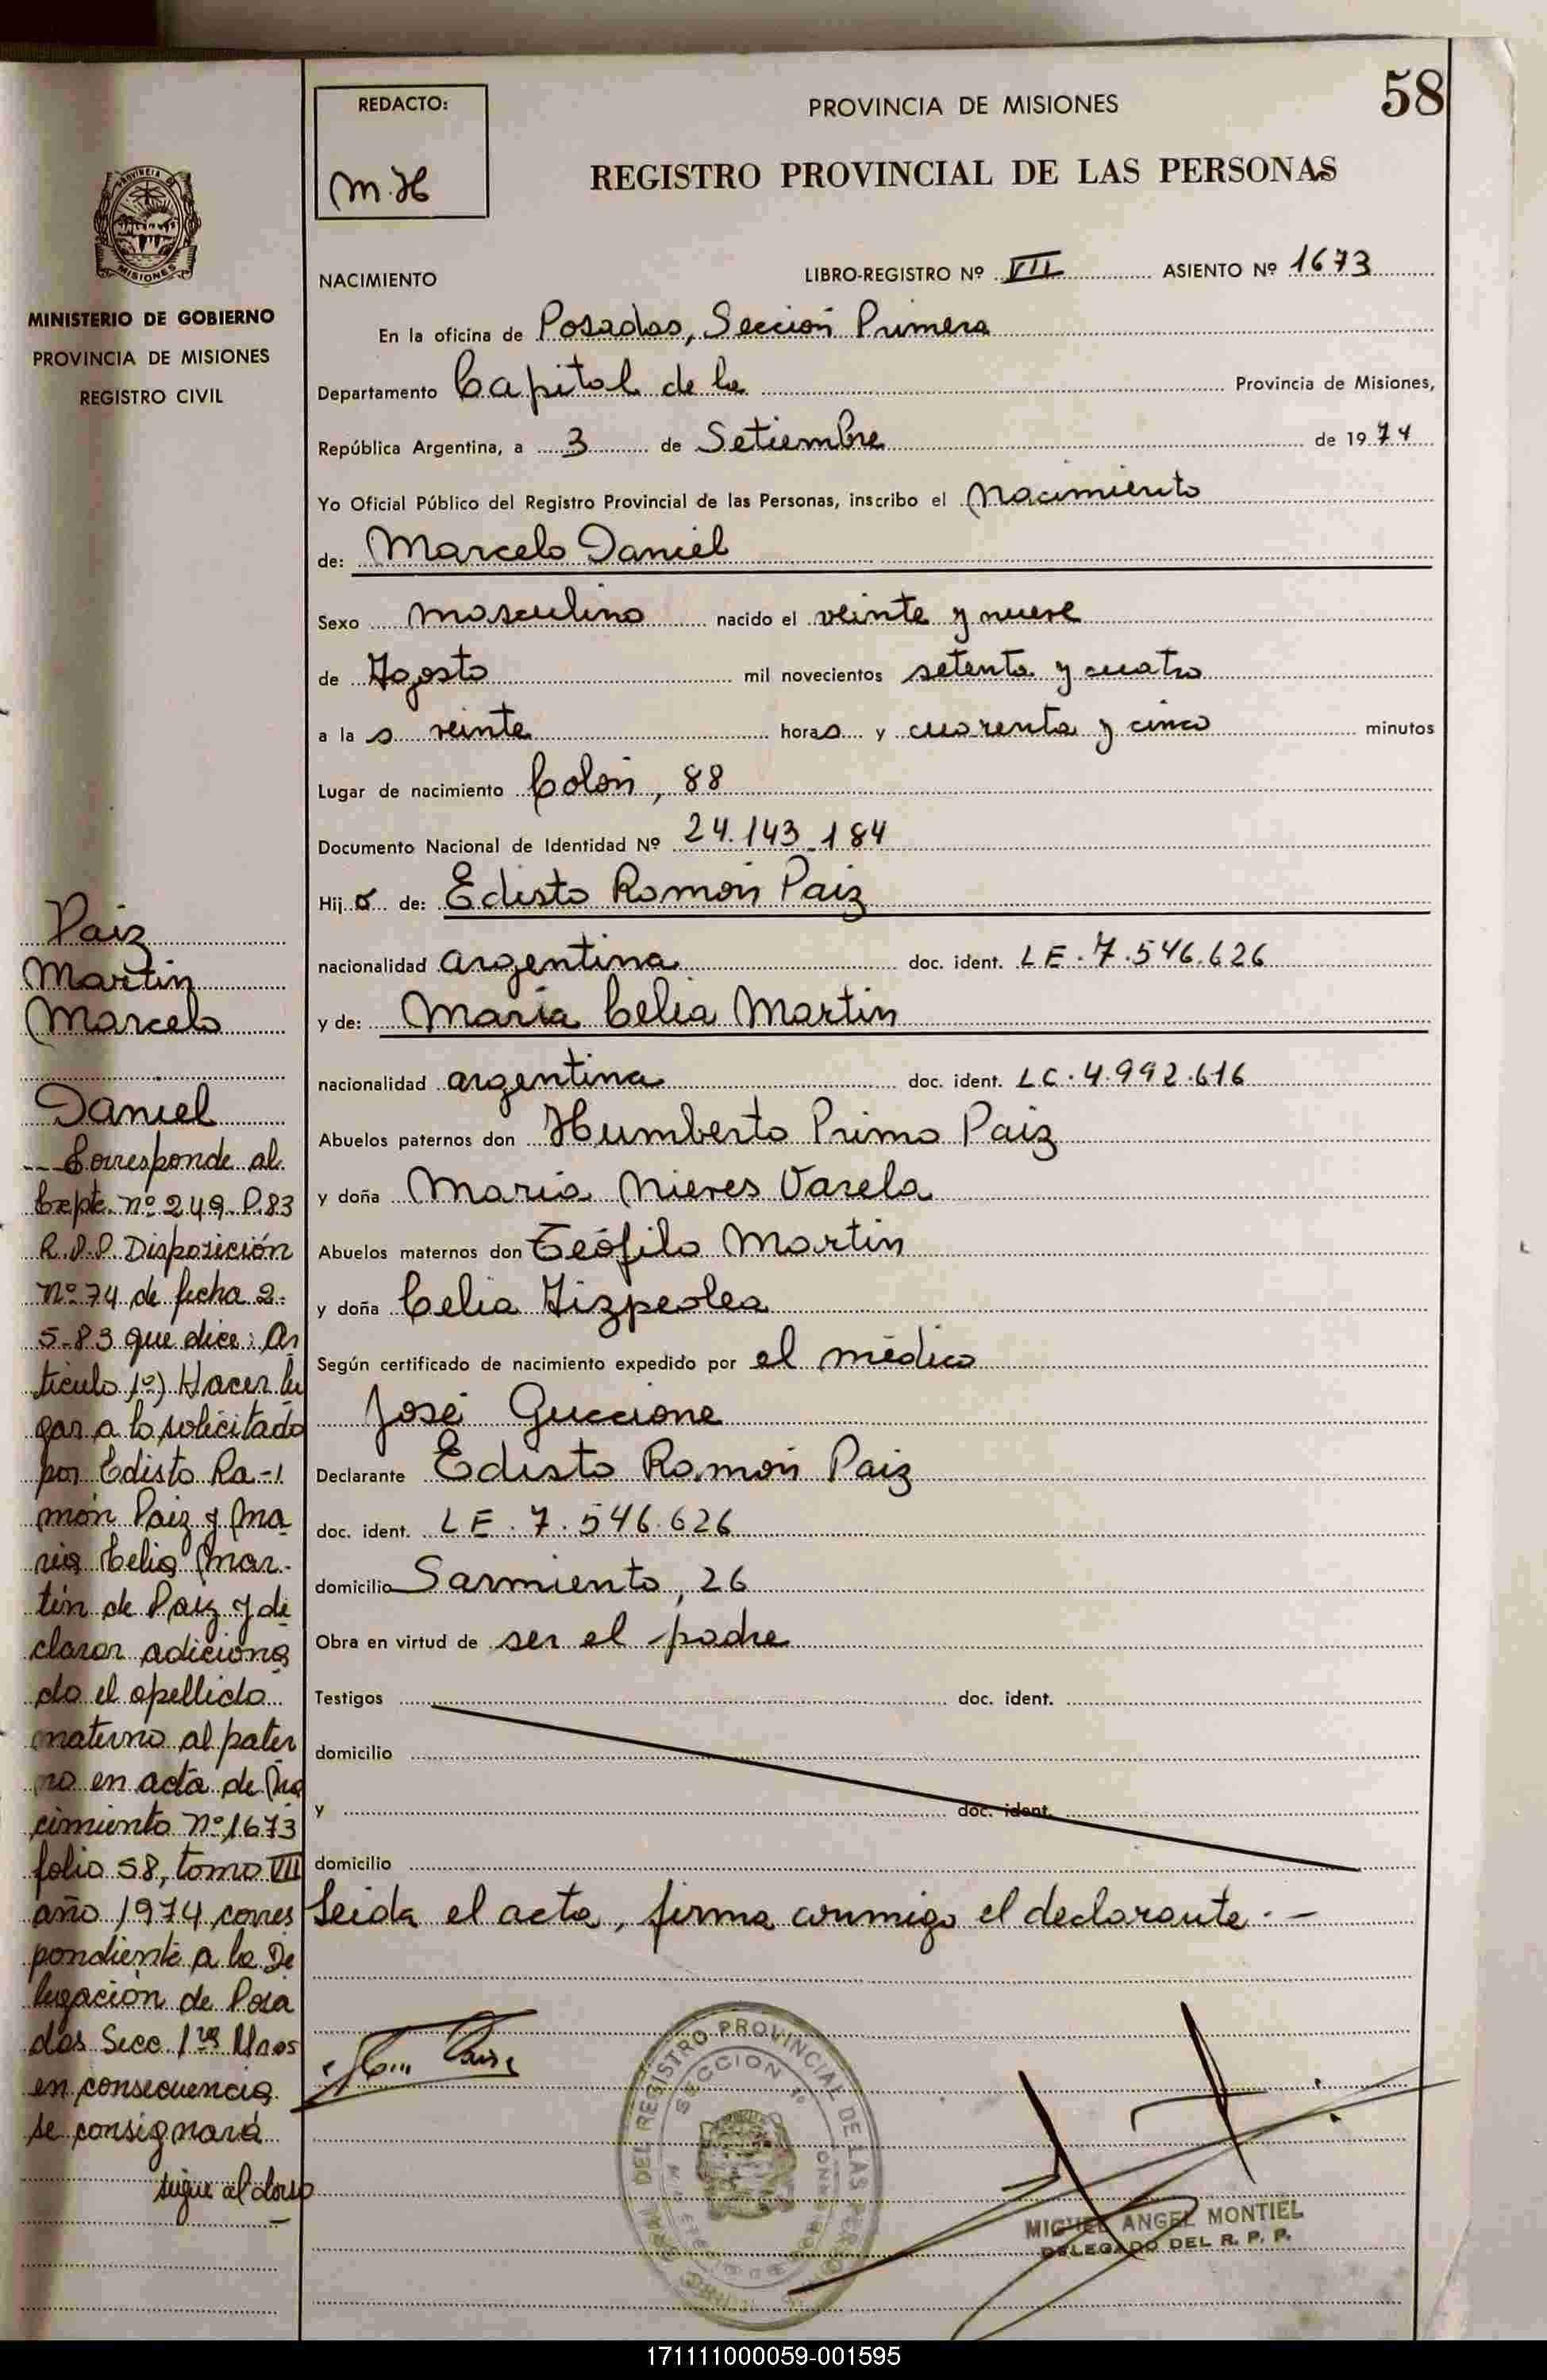 58
REDACTO:
M.H
PROVINCIA DE MISIONES
REGISTRO PROVINCIAL DE LAS PERSONAS
PROVINCIA DE
MISIONES
MINISTERIO DE GOBIERNO
PROVINCIA DE MISIONES
REGISTRO CIVIL
NACIMIENTO LIBRO-REGISTRO Nº VII ASIENTO Nº 1673
En la oficina de Posadas, Sección Primera
Departamento Capital de la Provincia de Misiones,
República Argentina, a 3 de Setiembre de 1974
Yo Oficial Público del Registro Provincial de las Personas, inscribo el Nacimiento
de: Marcelo Daniel
Sexo masculino nacido el veinte y nueve
de Agosto mil novecientos setenta y cuatro
a la s veinte horas y cuarenta y cinco minutos
Lugar de nacimiento Colón, 88
Documento Nacional de Identidad Nº 24.143.184
Hijo de: Edisto Ramón Paiz
nacionalidad argentina doc. ident. LE.7.546.626
y de: María Celia Martin
nacionalidad argentina doc. ident. LC.4.992.616
Abuelos paternos don Humberto Primo Paiz
y doña María Nieves Varela
Abuelos maternos don Teófilo Martin
y doña Celia Aizpeolea
Según certificado de nacimiento expedido por el médico
José Guccione
Declarante Edisto Ramón Paiz
doc. ident. LE.7.546.626
domicilio Sarmiento, 26
Obra en virtud de ser el padre
Testigos doc. ident.
domicilio
y doc. ident.
domicilio
Leida el acta, firma conmigo el declarante.-
Paiz
Martin
Marcelo
Daniel
Corresponde al
Expte. nº 249-P.83
R.P.P. Disposición
Nº 74 de fecha 2-
5-83 que dice: Ar
tículo 1º) Hacer lu
gar a lo solicitado
por Edisto Ra-
món Paiz y Ma
ria Celia Mar-
tín de Paiz y de
clarar adiciona
do el apellido
materno al pater
no en acta de Na
cimiento nº 1673
folio 58, tomo VII
año 1974 corres
pondiente a la De
legación de Posa
das Secc. 1ra Mnes
en consecuencia
se consignará
sigue al dorso
REGISTRO PROVINCIAL DE LAS PERSONAS
SECCION 1º
MISIONES
MIGUEL ANGEL MONTIEL
DELEGADO DEL R. P. P.
171111000059-001595